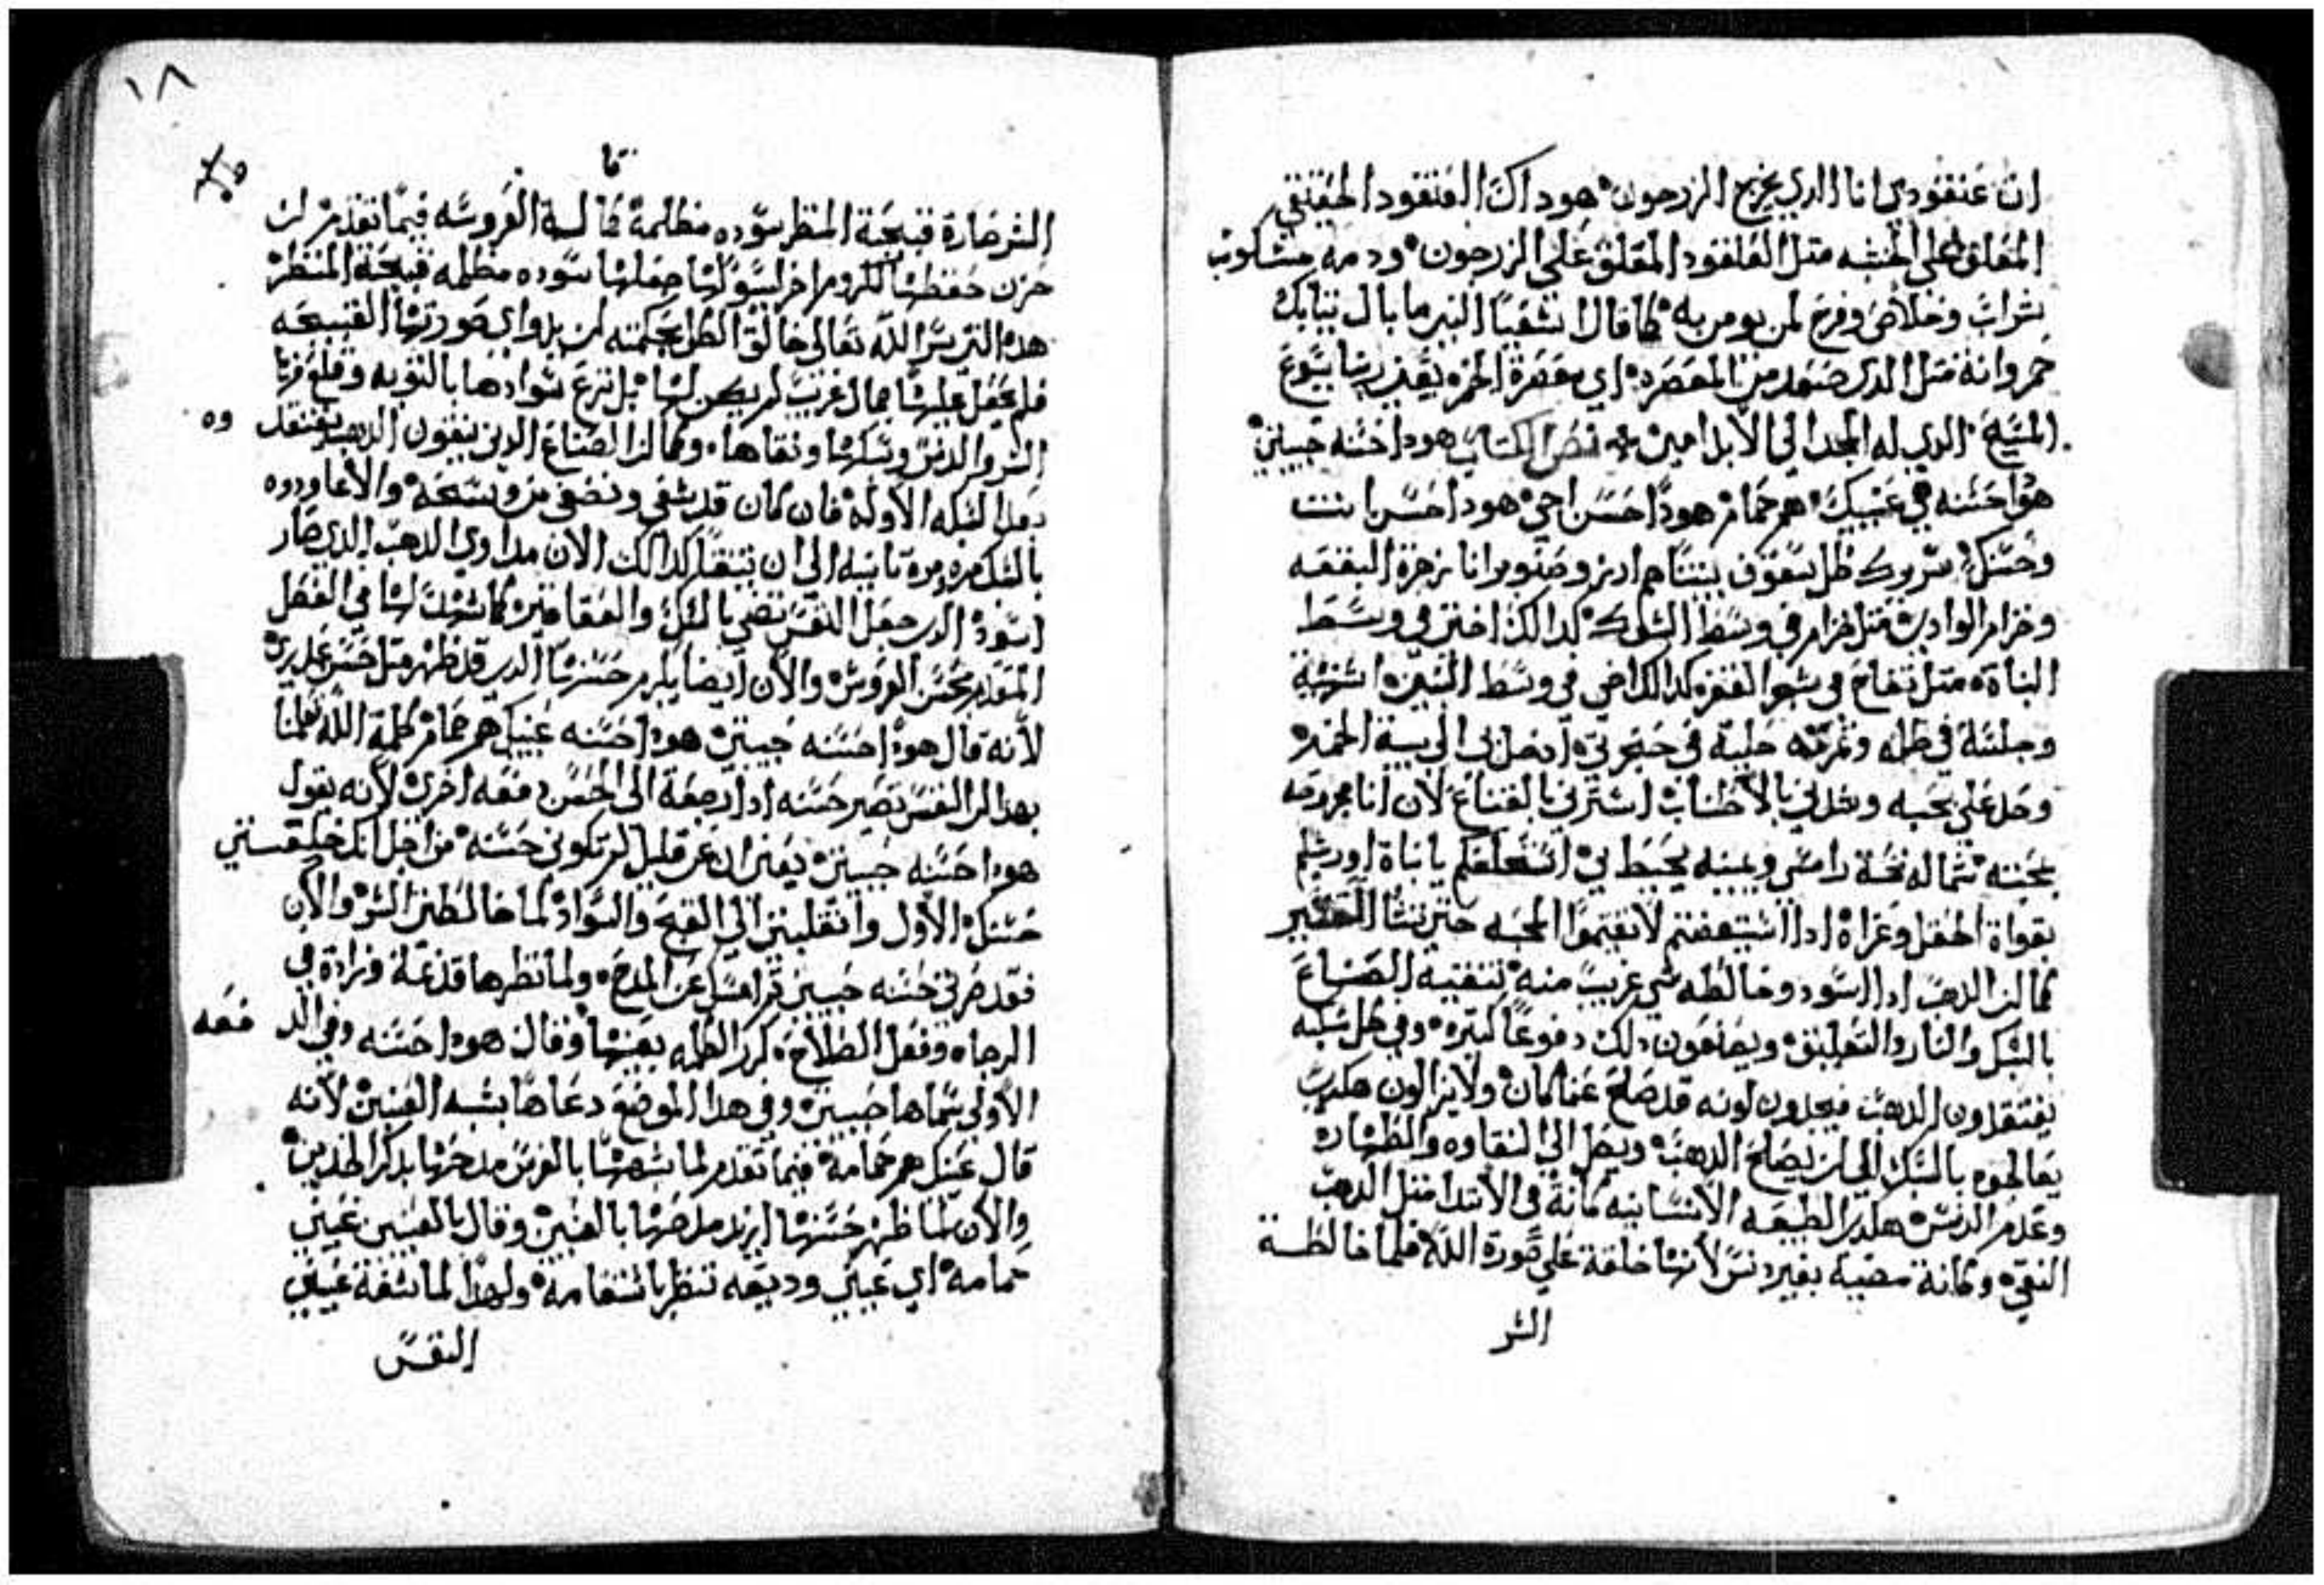 ان عنقودي انا الدي يخرج الزرجون هوداك العنقود الحقيقي
المعلق على الخشبه متل العنقود المعلق على الزرجون ودمه مشكوب
شراب وخلاص وفرح لمن يومن به كما قال اشعيا النبي ما بال تيابك
حمر وانه متل الدي صعد من المعصره اي معصرة الخمره يعني ربنا يسوع
المسيح الدي له المجد الي الابد امين نص الكتاب هودا حسنه حبيبتي
هودا حسنه في عنيك هم حمام هودا حسن اخي هودا حسن انت
وحسنك سروك ظل سقوف بيتنا هم ارز وصنوبر انا زهرة البقعه
وخزام الوادي متل خزام في وسط الشوك كدالك اختي في وسط
البناة متل تفاح في شجر القفر كدالك اخي في وسط البنين اشتهية
وجلسة في ظله وتمرته حلية في حنجرتي ادخل بي الي بيت الخمره
وحل علي بحبه وسندني بالاطناب استرني بالقناع لان انا مجروحه
بمحبته شماله تحت راسي ويمينه يحيط بي استحلفكم يا بناة اورشليم
بقواة الحقل وعزاه ادا استيقضتم لاتقيموا المحبه حتي تشا التفسير
كما ان الدهب ادا اسود وخالطه شي غريب منه لتنقية الصناع
بالسبك والنار والتعليق ويصنعون دلك دفوعا كتيره وفي كل سبكه
يفتقدون الدهب فيجدون لونه قد صلح عما كان ولايزالون هكدي
يعالجوه بالسبك الي ان يصلح الدهب ويصل الي النقاوه والطهاره
وعدم الدنس هكدي الطبيعه الانسانيه كانة في الابتدا متل الدهب
النقي وكانة مضيه بغير دنس لانها خلقة علي صورة الله فلما خالطة
الشر
١٨
الشر صارة قبيحة المنظر سوده مظلمة كما قالت العروسه فيما تقدم ان
حزن حفظها للكروم اخر لسوالها جعلها سوده مظلمه قبيحة المنظر
هده التي سر الله تعالي خالق الكل بحكمته ان يداوي صورتها القبيحه
فلم يجعل عليها جمال غريب لم يكن لها بل نزع سوادها بالتوبه وقلع منها
الشر والدنس وسبكها ونقاها وكما ان الصناع الدين ينقون الدهب يفتقدوه
بعد السبكه الاوله فان كان قد شفي ونضف من وسخه والا عاودوه
بالسبك مره تانيه الي ان يتنقا كدالك الان مداوي الدهب الدي صار
اسود الدي جعل النفس تضي بالسبك والعقاقير كما شهدت لها في الفصل
المتقدم بحسن العروس والان ايضا يلزم حسنها الدي قد ظهر متل حسن عدري
لانه قال هودا حسنه حبيبتي هودا حسنه عنيك هم حمام كلمة الله تعلمنا
بهدا ان النفس تصير حسنه ادا رجعة الي الحسن دفعه اخري لانه يقول
هودا حسنه حبيبتي يعني ان عن قليل لم تكوني حسنه من اجل انك خليتي
حسنك الاول وانقلبتي الي القبح والسواد لما خالطتي الشر والان
فقد صرتي حسنه حبيبتي ولما نظرها قد نمة وزادة في
الرجاه وفعل الصلاح كرر الكلمه بعينها وقال هودا حسنه وفي الدفعه
الاولي سماها حبيبتي وفي هدا الموضع دعاها بشبه العينين لانه
قال عنيك هم حمامة فيما تقدم لما شبهها بالفرس مدحها بدكر الخدين
والان لما ظهر حسنها ازيد مدحها بالعينين وقال بالعينين عينين
حمامه اي عينين وديعه تنظر باستقامة ولهدا لما شفة عينين
النفس